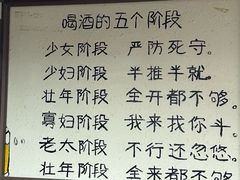 喝酒的五个阶段
少女阶段 严防死守。
少妇阶段 半推半就。
壮年阶段 全开都不够。
寡妇阶段 我来找你斗。
老太阶段 不行还忽悠。
壮年阶段 全来都不够。